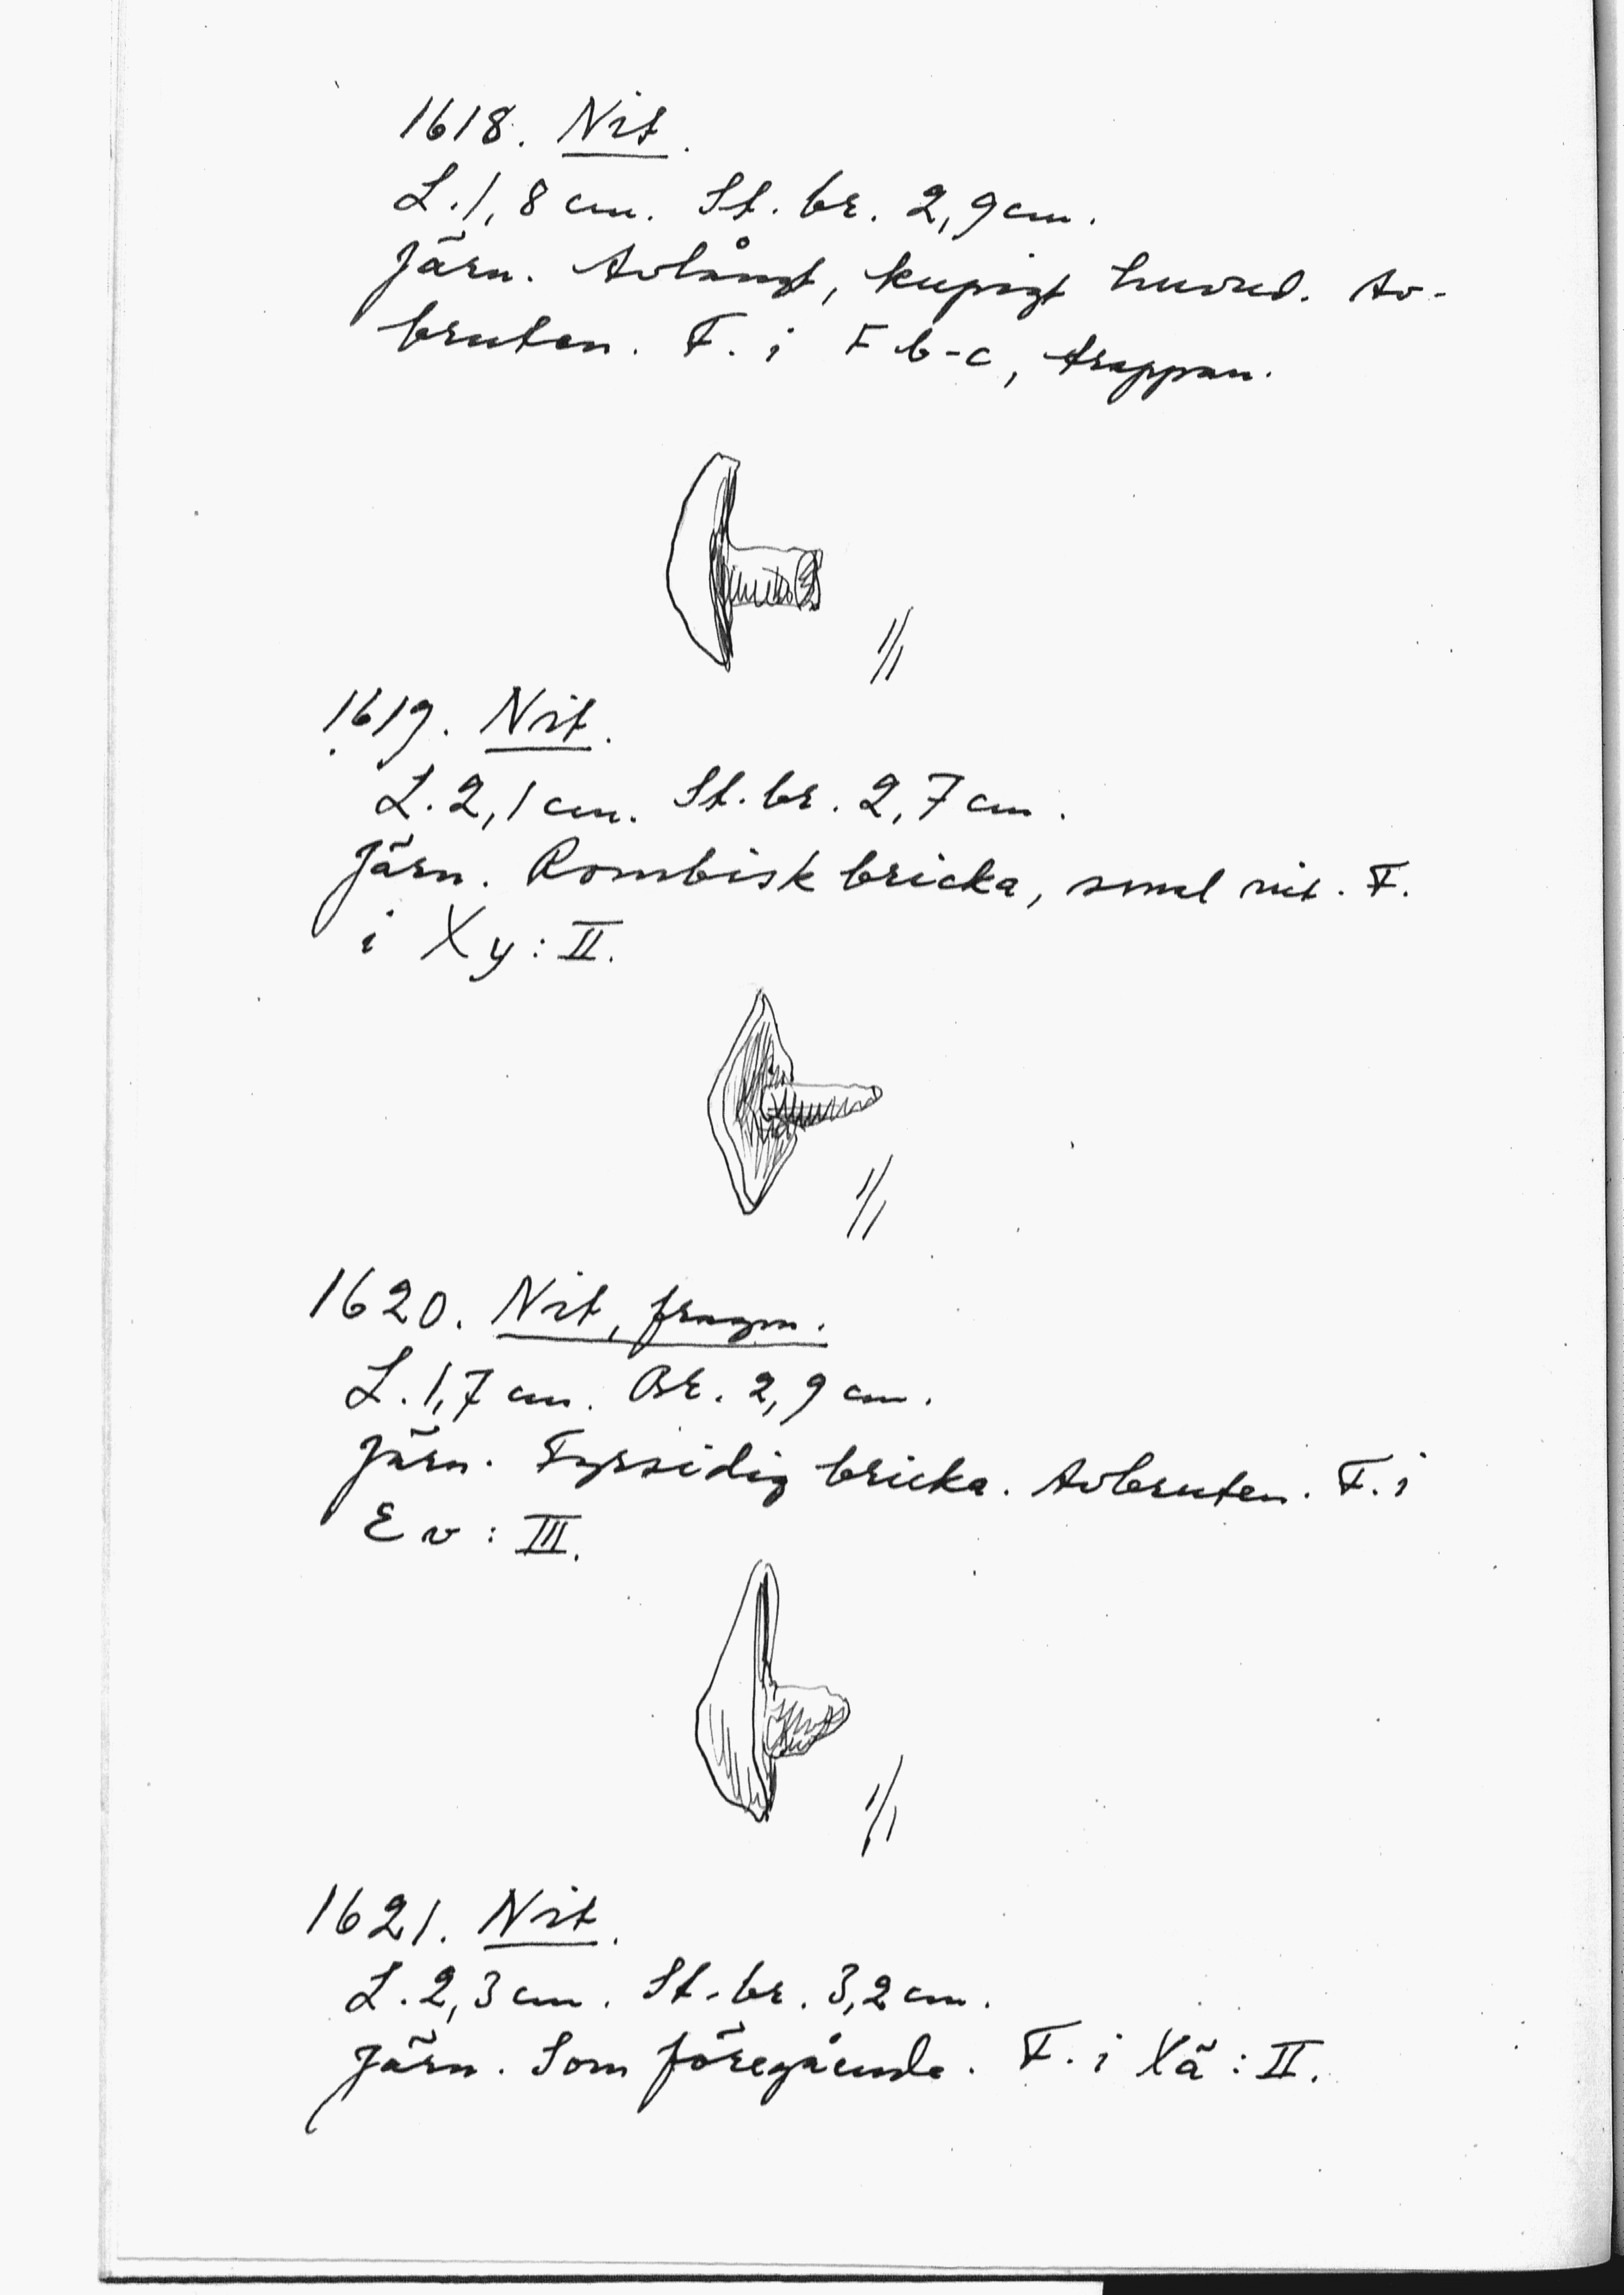 1618. Nit.
L. 1,8 cm. St. br. 2,9 cm.
Järn. Avlångt, kupigt huvud. Av-
bruten. F. i F b-c, trappan.
1/1
1619. Nit.
L. 2,1 cm. St. br. 2,7 cm.
Järn. Rombisk bricka, smal nit. F.
i Xy: II.
1/1
1620. Nit, fragm.
L. 1,7 cm. Br. 2,9 cm.
Järn. Fyrsidig bricka. Avbruten. F. i
Ev: III.
1/1
1621. Nit.
L. 2,3 cm. St. br. 3,2 cm.
Järn. Som föregående. F. i Xä: II.